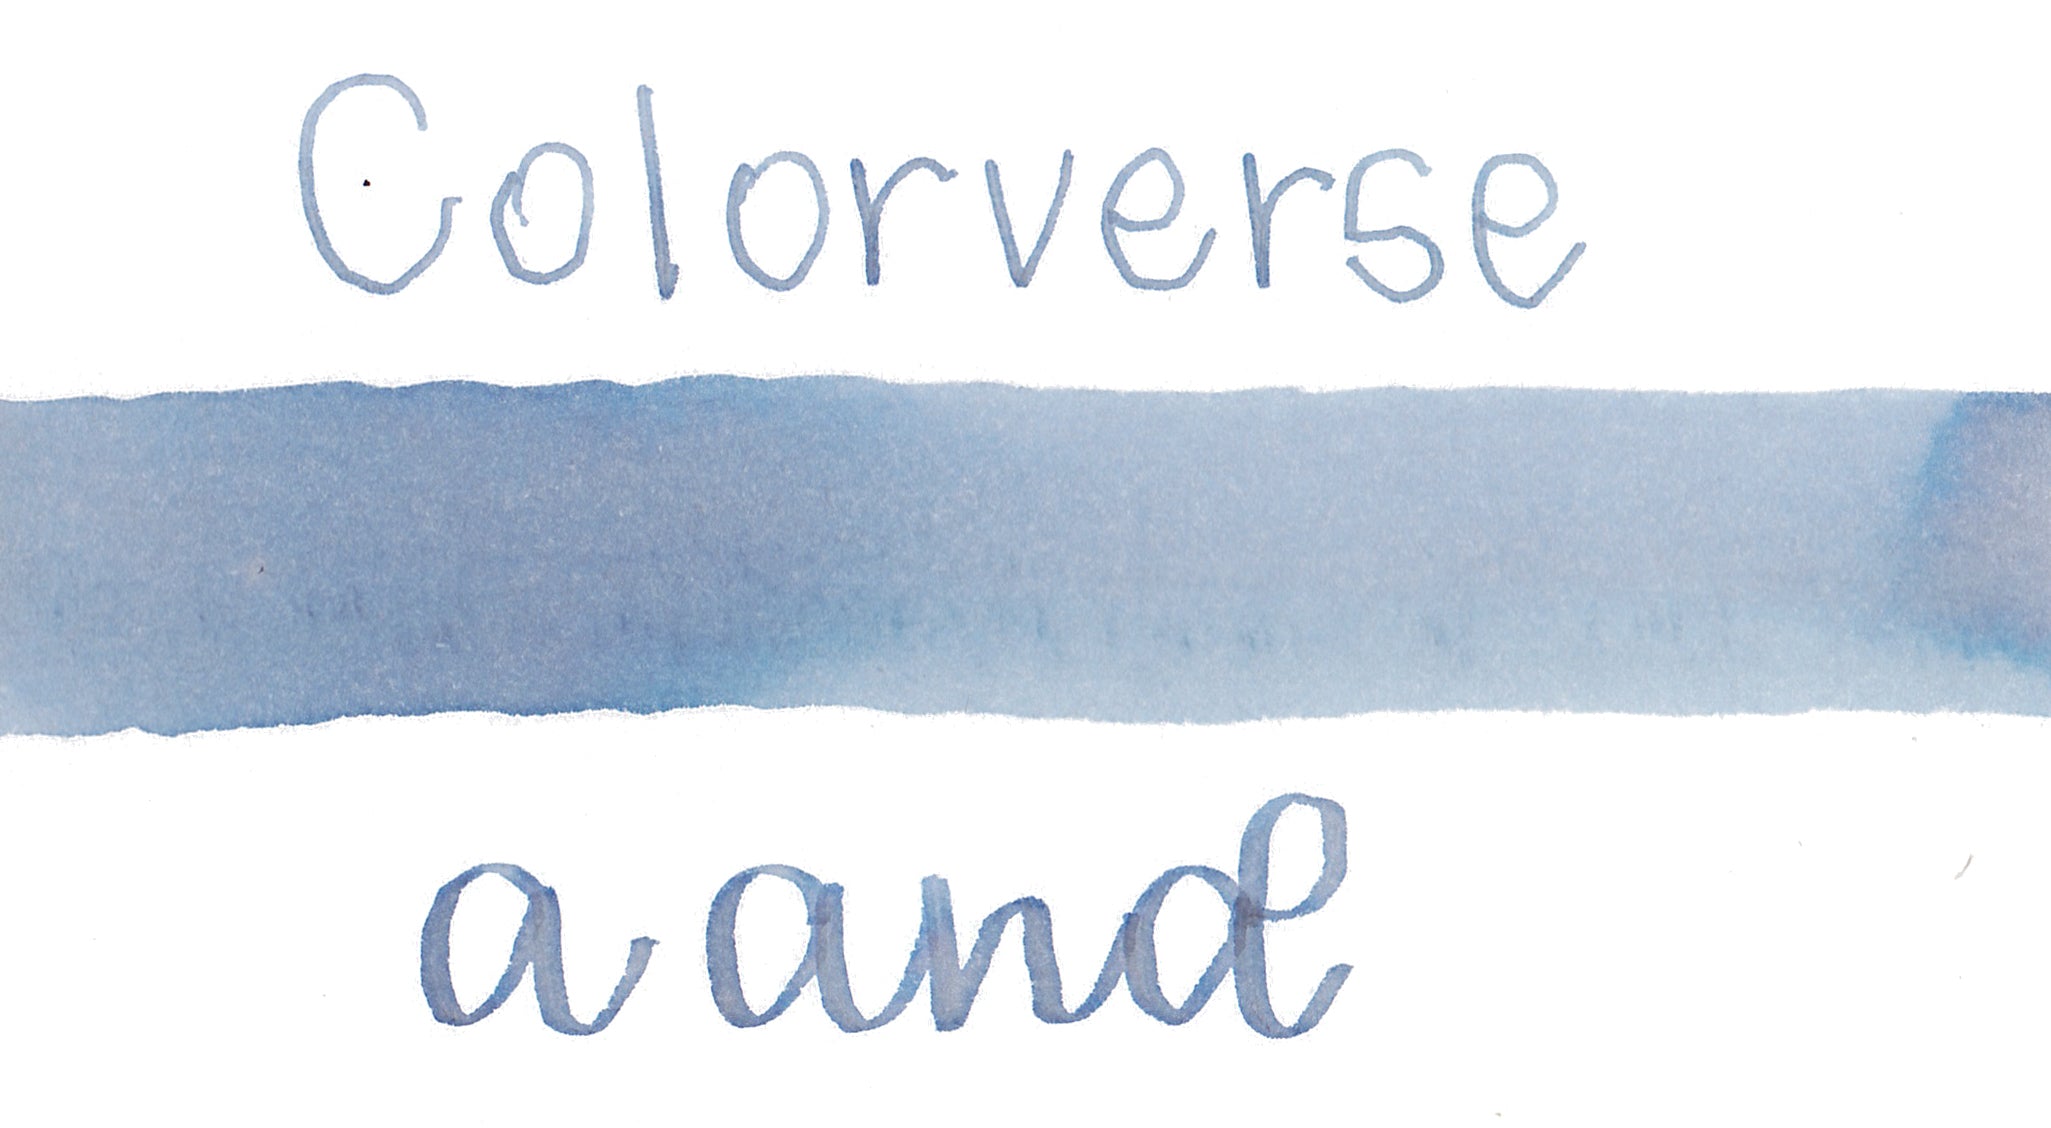 Colorverse
a and